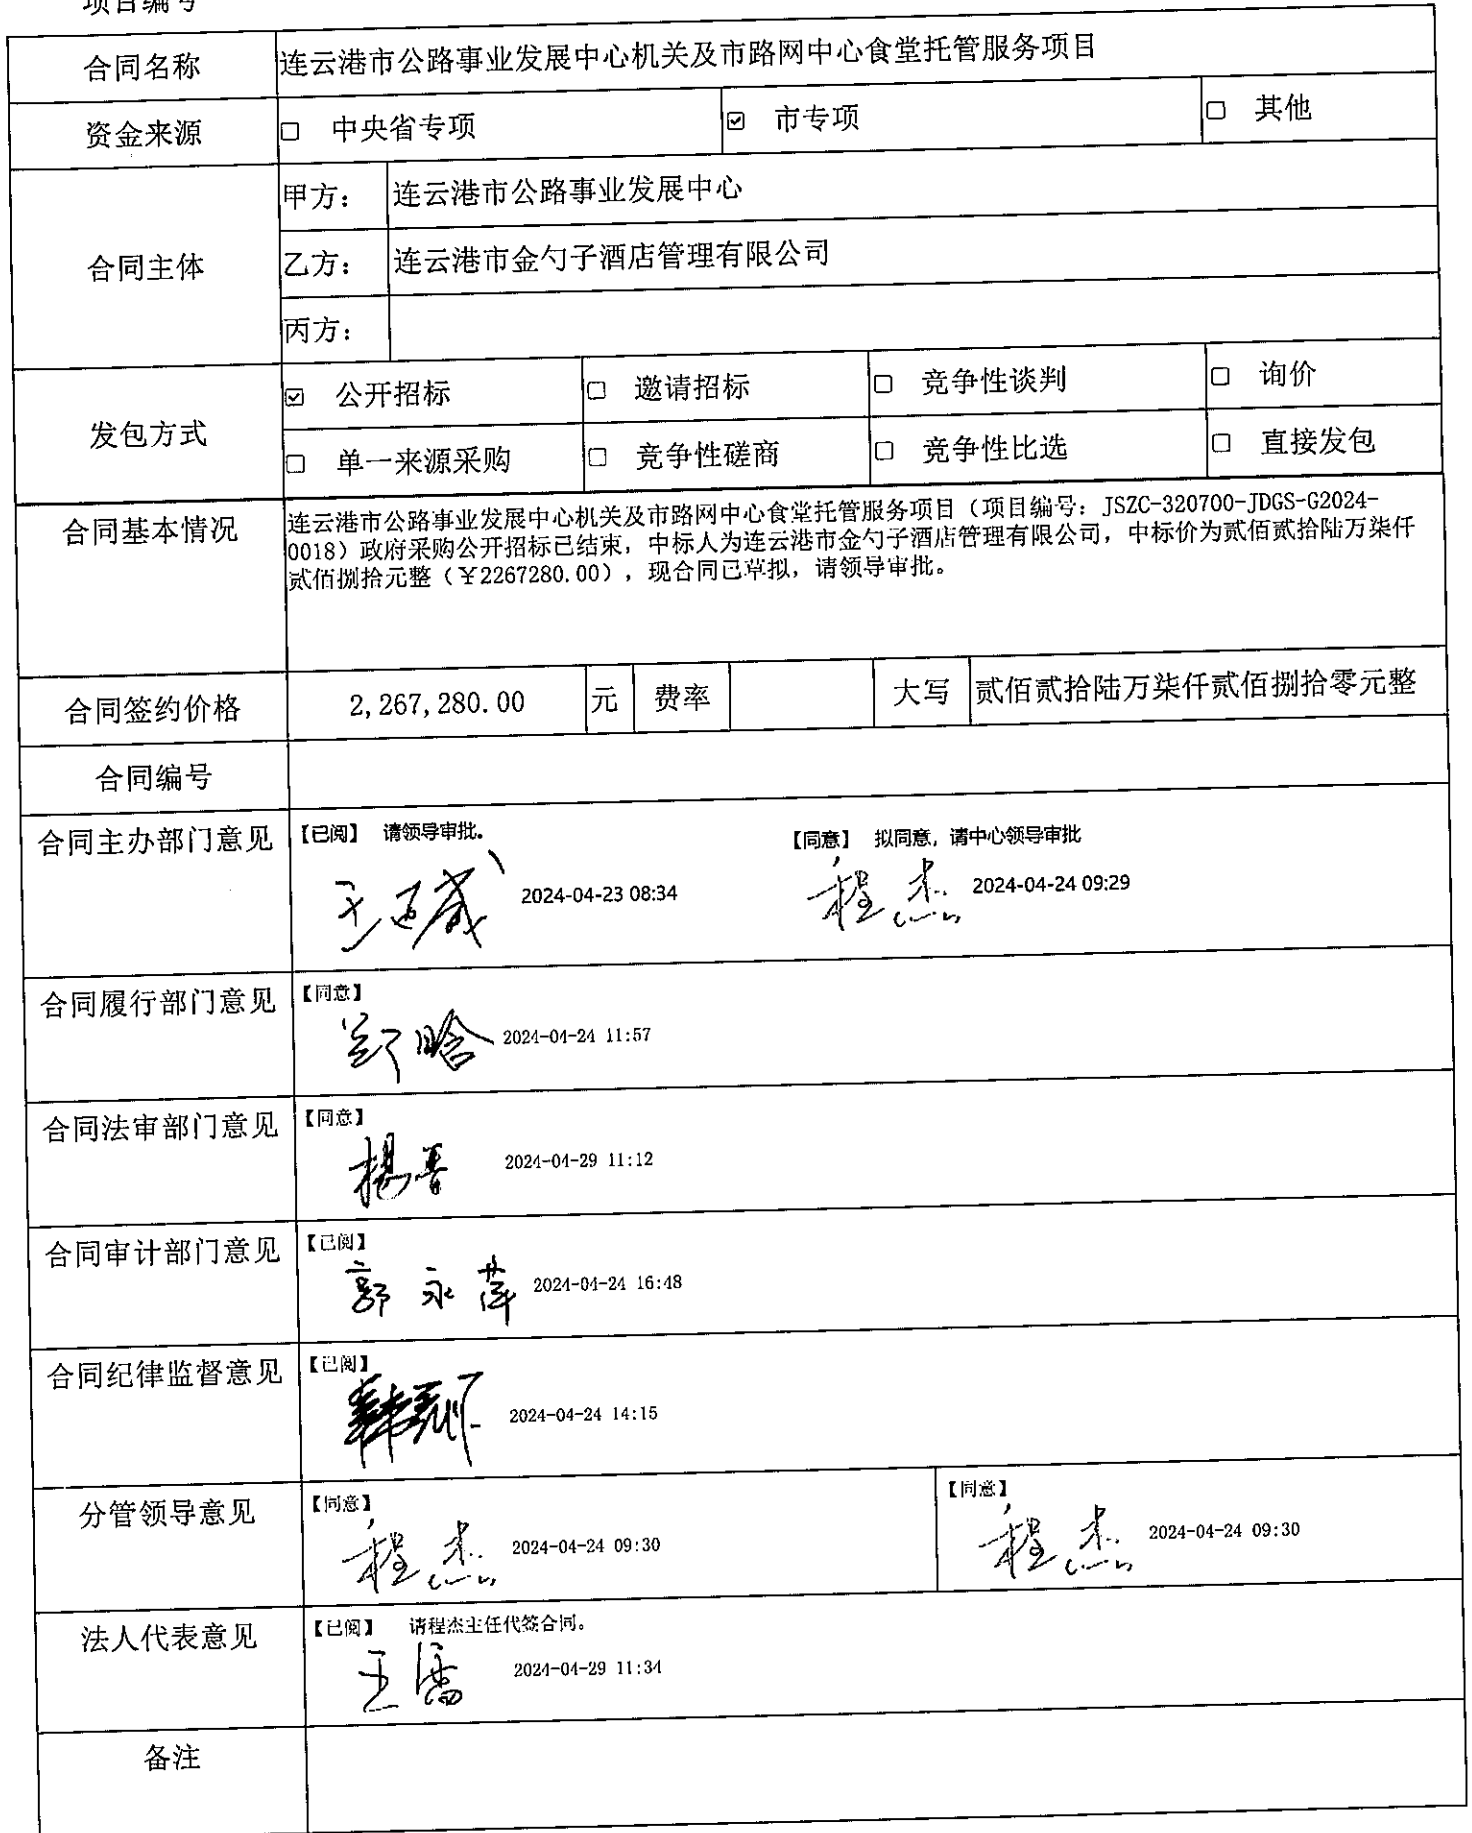 项目编号
合同名称 连云港市公路事业发展中心机关及市路网中心食堂托管服务项目
资金来源 □ 中央省专项 ☑ 市专项 □ 其他
合同主体 甲方： 连云港市公路事业发展中心
乙方： 连云港市金勺子酒店管理有限公司
丙方：
发包方式 ☑ 公开招标 □ 邀请招标 □ 竞争性谈判 □ 询价
□ 单一来源采购 □ 竞争性磋商 □ 竞争性比选 □ 直接发包
合同基本情况 连云港市公路事业发展中心机关及市路网中心食堂托管服务项目（项目编号：JSZC-320700-JDGS-G2024-
0018）政府采购公开招标已结束，中标人为连云港市金勺子酒店管理有限公司，中标价为贰佰贰拾陆万柒仟
贰佰捌拾元整（￥2267280.00），现合同已草拟，请领导审批。
合同签约价格 2,267,280.00 元 费率 大写 贰佰贰拾陆万柒仟贰佰捌拾零元整
合同编号
合同主办部门意见 【已阅】 请领导审批。 【同意】 拟同意，请中心领导审批
2024-04-23 08:34 程杰 2024-04-24 09:29
合同履行部门意见 【同意】
2024-04-24 11:57
合同法审部门意见 【同意】
2024-04-29 11:12
合同审计部门意见 【已阅】
郭永萍 2024-04-24 16:48
合同纪律监督意见 【已阅】
2024-04-24 14:15
分管领导意见 【同意】 【同意】
程杰 2024-04-24 09:30 程杰 2024-04-24 09:30
法人代表意见 【已阅】 请程杰主任代签合同。
2024-04-29 11:34
备注